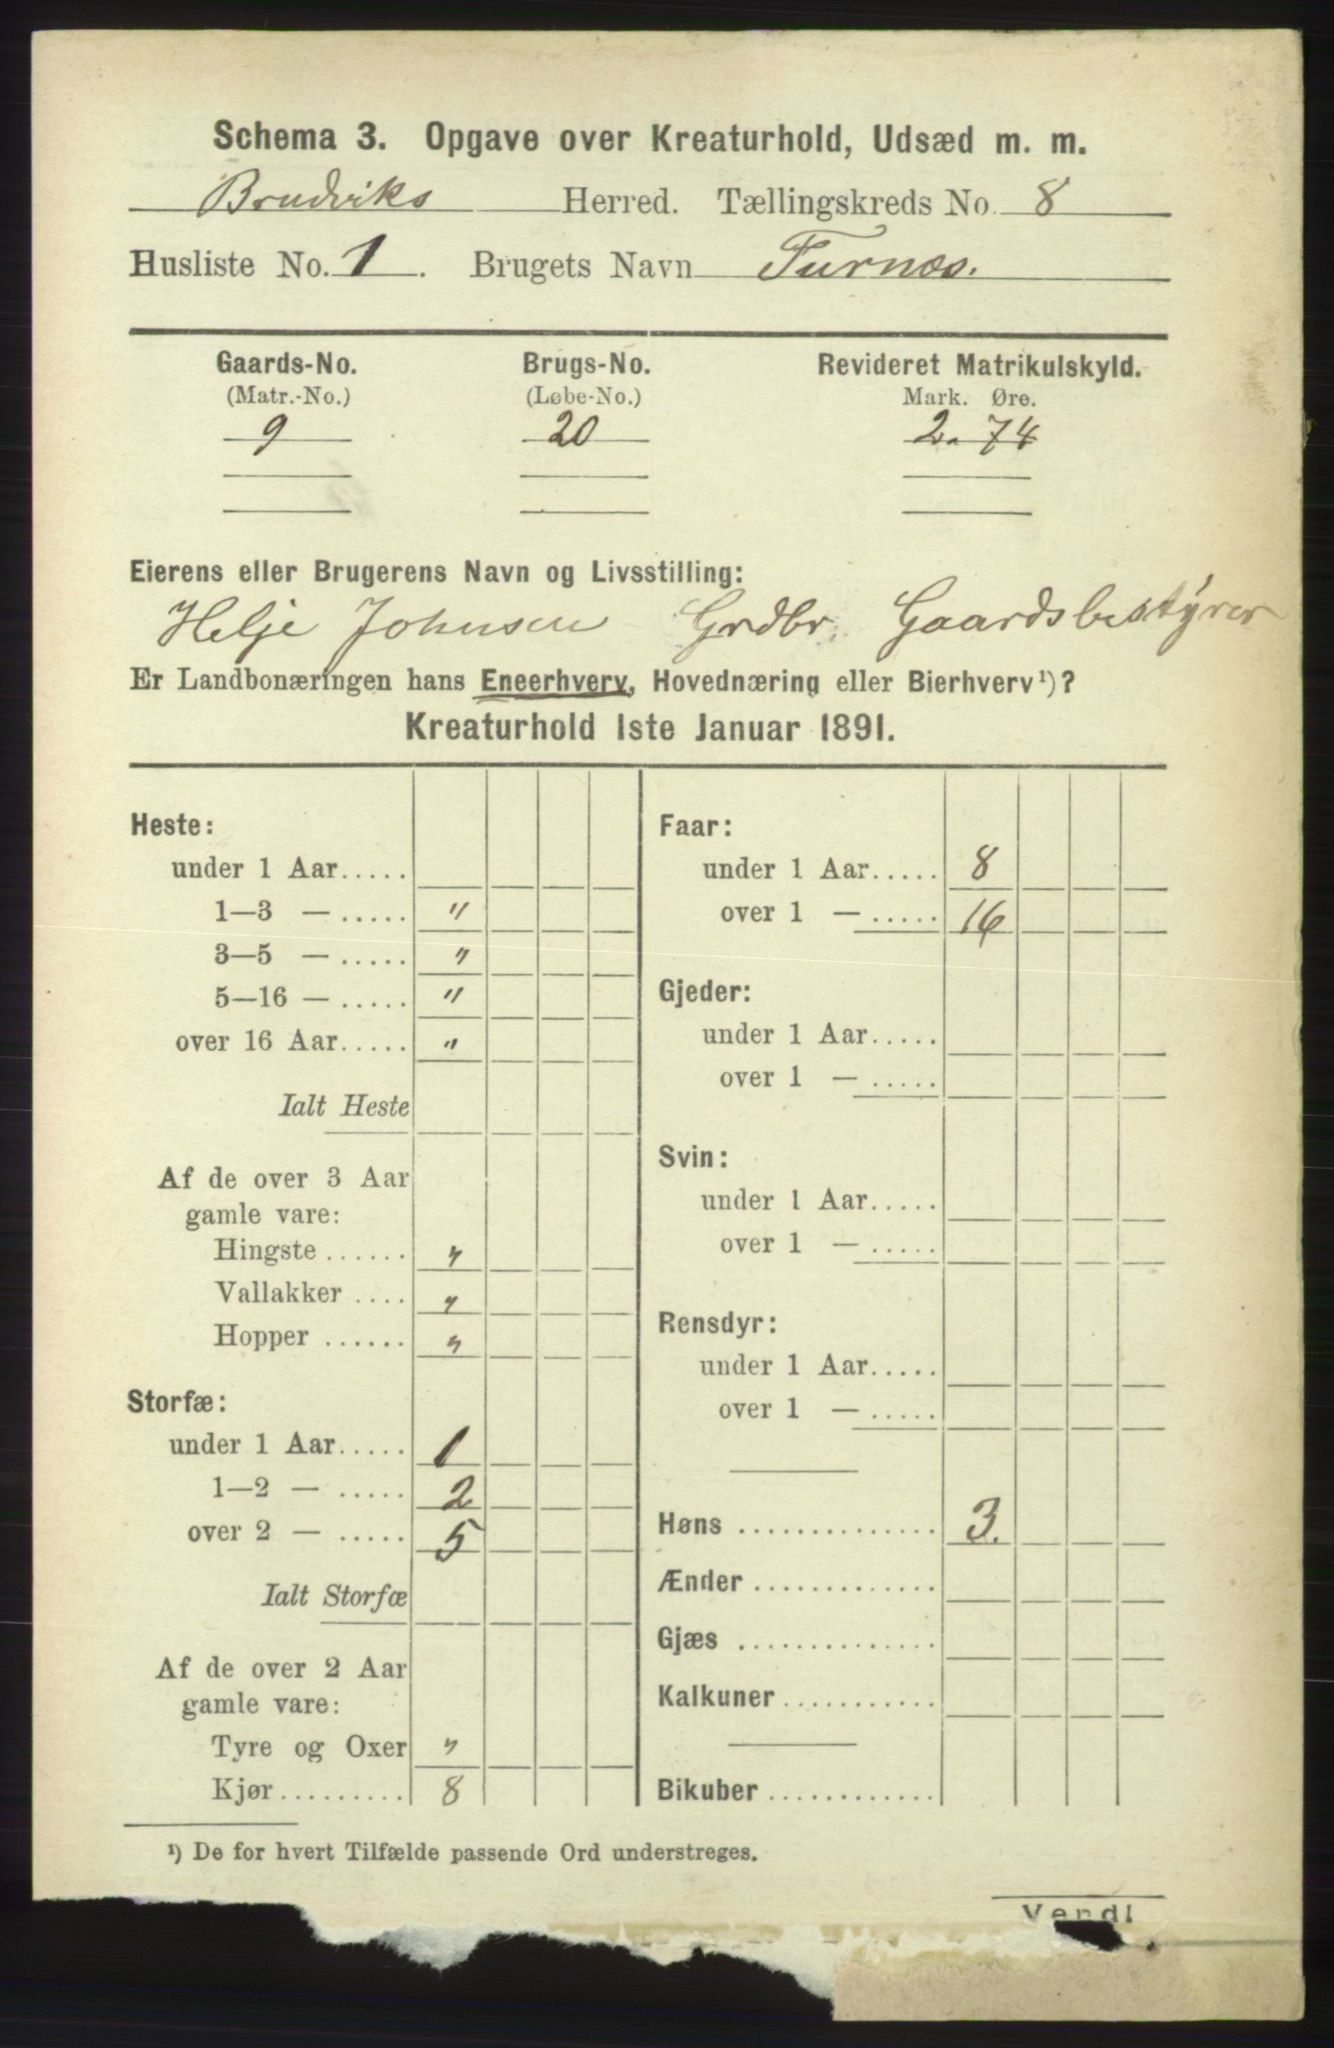 Schema 3. Opgave over Kreaturhold, Udsæd m. m.
Brudviks Herred. Tællingskreds No. 8
Husliste No. 1. Brugets Navn Furnæs.
Gaards-No. Brugs-No. Revideret Matrikulskyld.
(Matr.-No.) (Løbe-No.) Mark. Øre.
9 20 2. 74
Eierens eller Brugerens Navn og Livsstilling:
Helje Johnsen Grdbr. Gaardsbestyrer
Er Landbonæringen hans Eneerhverv, Hovednæring eller Bierhverv¹)?
Kreaturhold 1ste Januar 1891.
Heste:
under 1 Aar.....
1—3 — ..... "
3—5 — ..... "
5—16 — ..... "
over 16 Aar..... "
Ialt Heste
Af de over 3 Aar
gamle vare:
Hingste ...... "
Vallakker .... "
Hopper ...... "
Storfæ:
under 1 Aar..... 1
1—2 — ..... 2
over 2 — ..... 5
Ialt Storfæ
Af de over 2 Aar
gamle vare:
Tyre og Oxer "
Kjør......... 8
Faar:
under 1 Aar..... 8
over 1 — ..... 16
Gjeder:
under 1 Aar.....
over 1 — .....
Svin:
under 1 Aar.....
over 1 — .....
Rensdyr:
under 1 Aar.....
over 1 — .....
Høns .............. 3.
Ænder .............
Gjæs ..............
Kalkuner ...........
Bikuber ............
¹) De for hvert Tilfælde passende Ord understreges.
Vend!